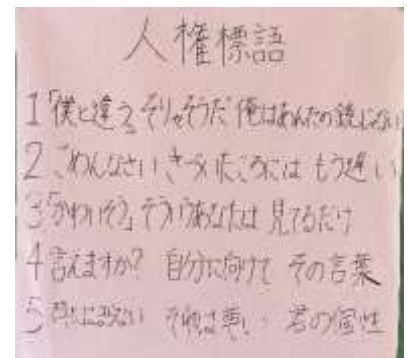 人権標語
1「僕と違う」そりゃそうだ 俺はあんたの鏡じゃない
2 ごめんなさい きづいたころには もう遅い
3「かわいそう」そういうあなたは 見てるだけ
4 言えますか? 自分に向けて その言葉
5 それは 君の個性